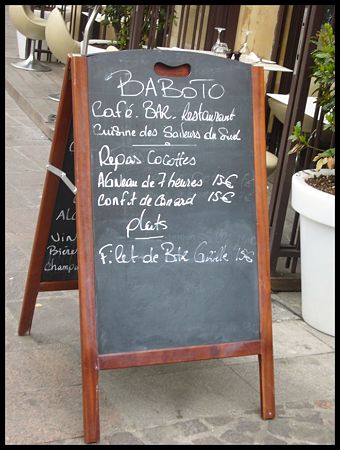 BABOTO
Café. BAR. Restaurant
Cuisine des Saveurs du Sud
Repas Cocottes
Agneau de 7 heures 15€
Confit de Canard 15€
plats
Filet de Bar Grillé 15€
Vin
Bière
Champa